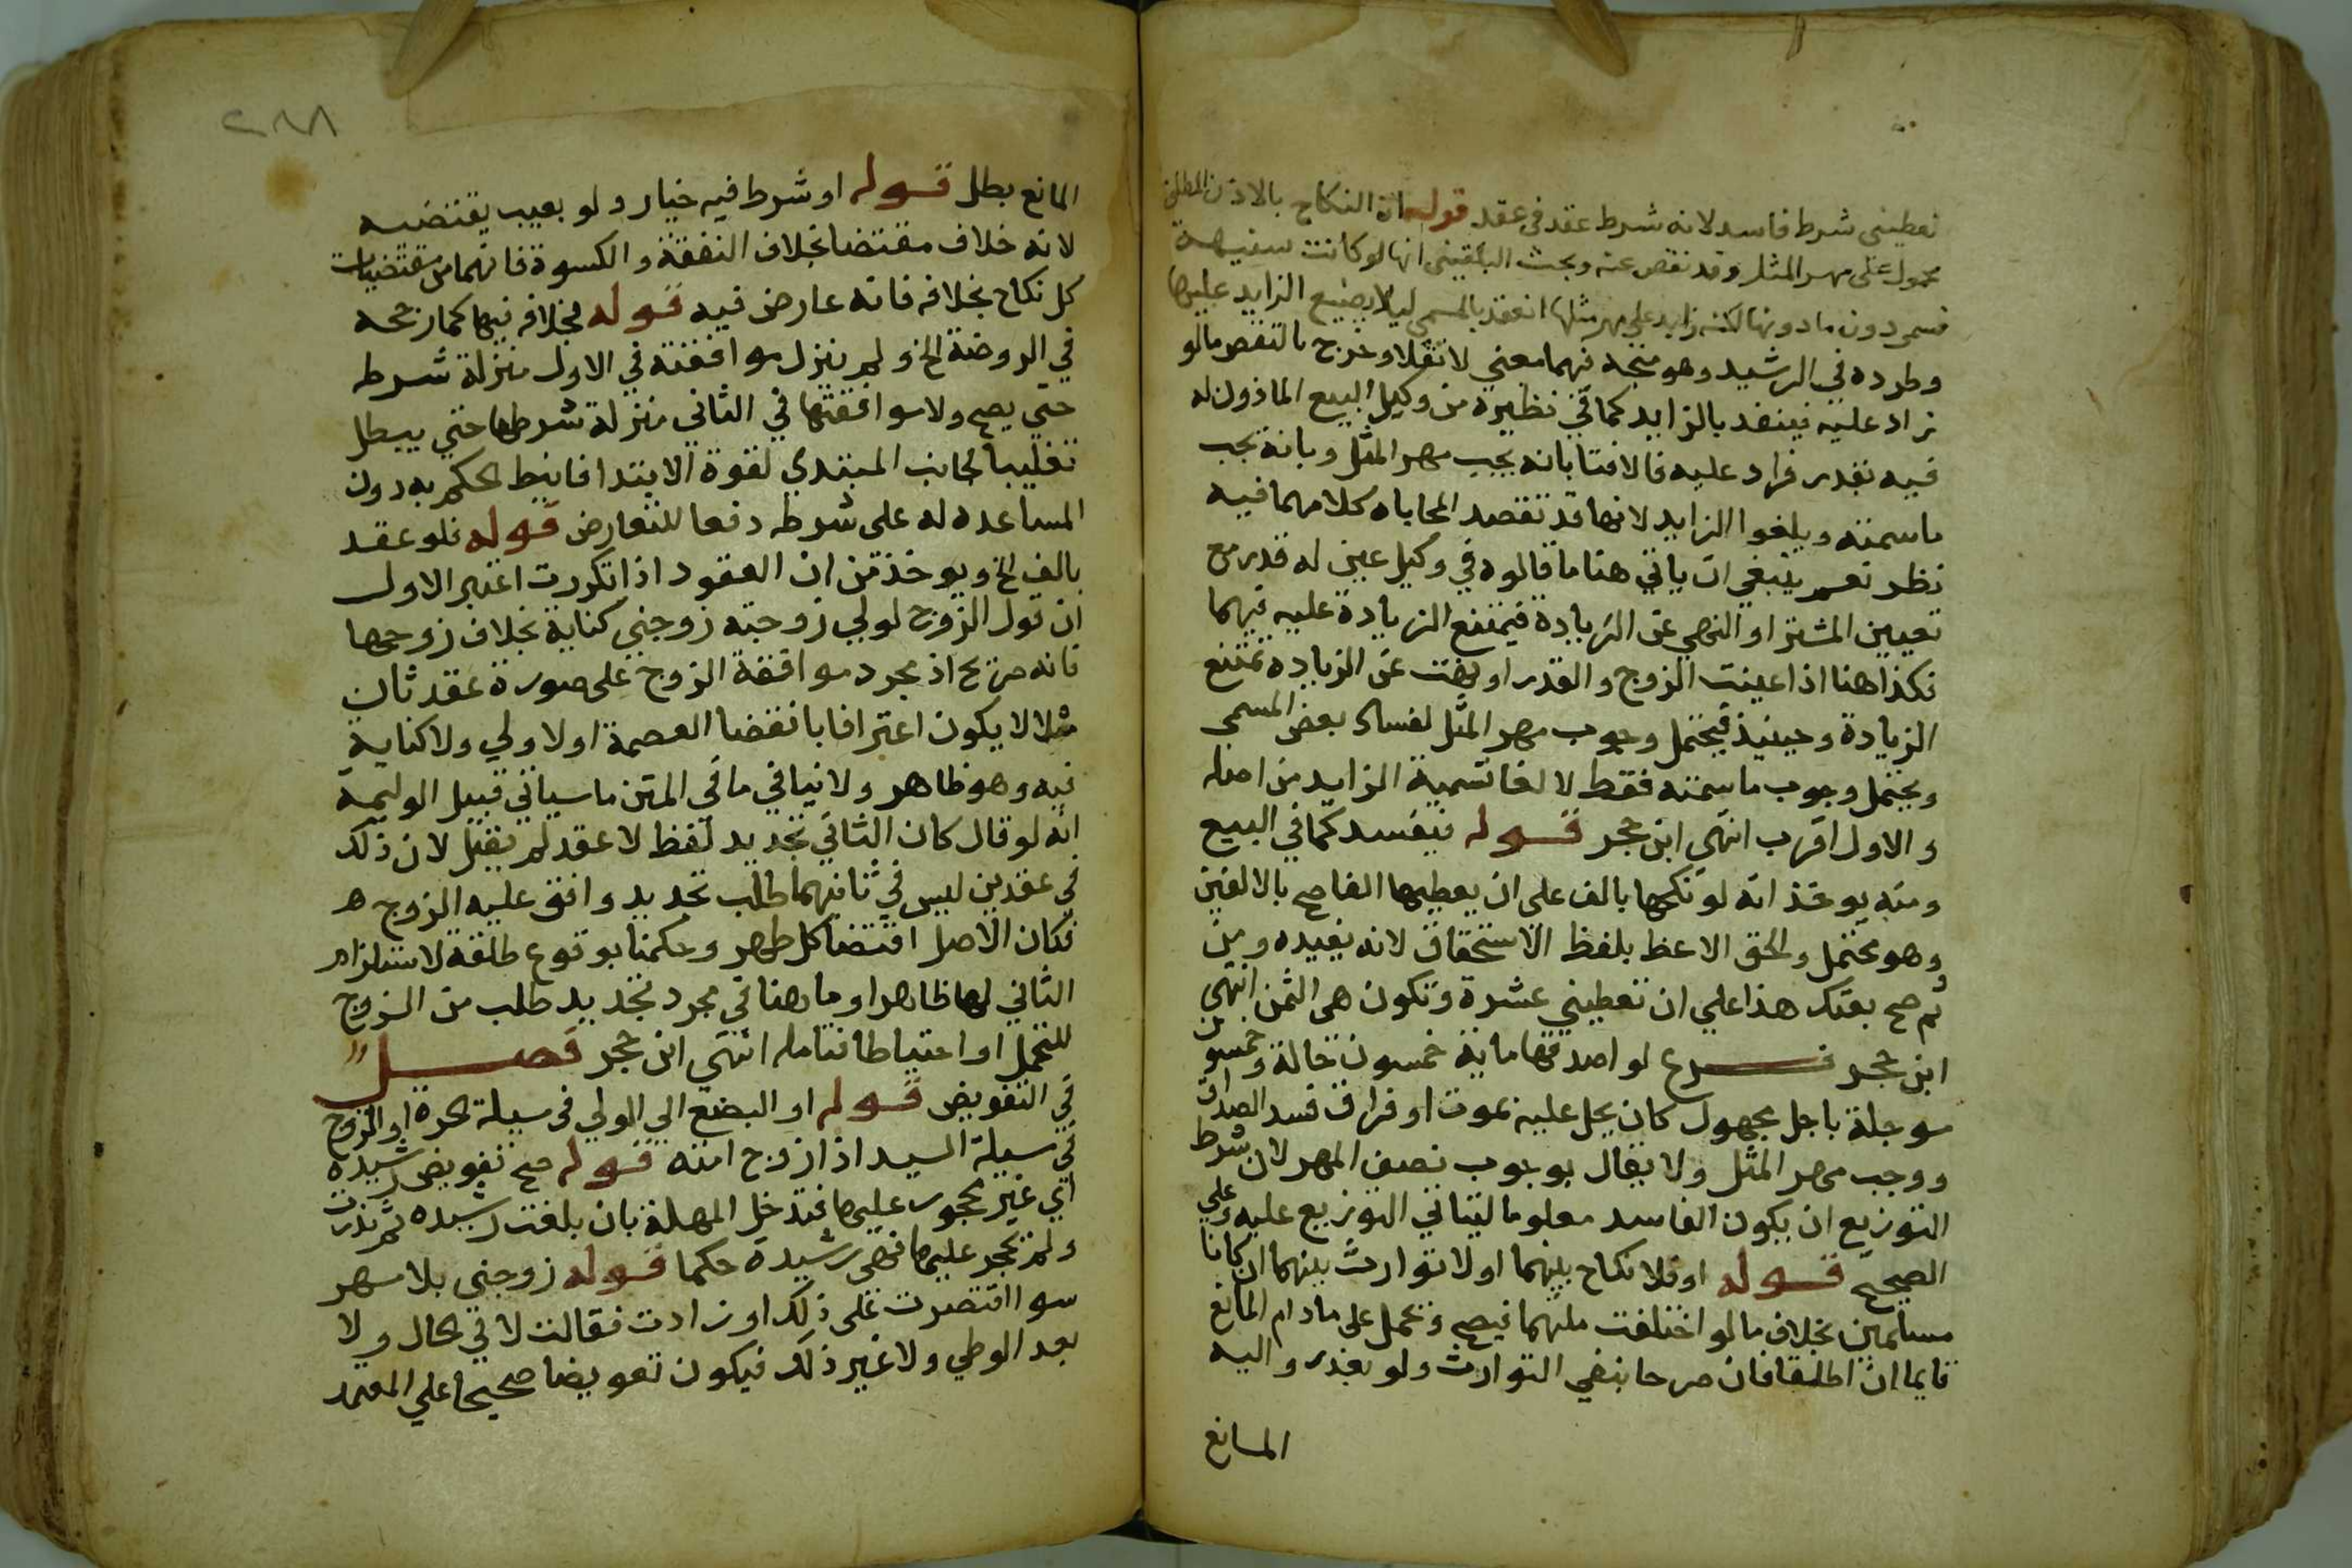 تعطيني شرط فاسد لانه شرط عقد في عقد قوله اذ النكاح بالاذن المطلق
محمول على مهر المثل وقد نقص عنه وبحث البلقيني انها لو كانت سفيهة
فسمى دون ما دونها لكنه زايد على مهر مثلها انعقد بالمسمى ليلا يضيع الزايد عليها
وطرده في الرشيد وهو متجه فيهما معني لا نقلا وخرج بالنقص ما لو
زاد عليه فينفد بالزايد كما في نظيره من وكيل البيع الماذون له
فيه بقدر فزاد عليه فالافتا بانه يجب مهر المثل وبانه يجب
ما سمته ويلغوا الزايد لانها قد تقصد المحاباه كلامهما فيه
نظر نعم ينبغي ان ياتي هنا ما قالوه في وكيل عين له قدر مع
تعيين المشتر او النهي عن الزيادة فيمتنع الزيادة عليه فيهما
فكذا هنا اذا عينت الزوج والقدر او نهت عن الزياده تمتنع
الزيادة وحينيذ فيحتمل وجوب مهر المثل لفساد بعض المسمى
ويحتمل وجوب ما سمته فقط لالغا تسمية الزايد من اصله
والاول اقرب انتهي ابن حجر قوله فيفسد كما في البيع
ومنه يوخذ انه لو نكحها بالف على ان يعطيها الفا صح بالالفين
وهو محتمل والحق الاعظ بلفظ الاستحقاق لانه يفيده ومن
ثم صح بعتك هذا علي ان تعطيني عشرة وتكون هي الثمن انتهي
ابن حجر فرع لو اصدقها ماية خمسون حالة وخمسون
موجلة باجل مجهول كان يحل عليه بموت او فراق فسد الصداق
ووجب مهر المثل ولا يقال بوجوب نصف المهر لان شرط
التوزيع ان يكون الفاسد معلوما ليتاتي التوزيع عليه وعلي
الصحيح قوله او فلا نكاح بينهما او لا توارث بينهما ان كانا
مسلمين بخلاف ما لو اختلفت ملتهما فيصح وتحمل على ما دام المانع
قايما ان اطلقا فان صرحا بنفي التوارث ولو بعد زواليه
المانع
المانع بطل قوله او شرط فيه خيار ولو بعيب يقتضيه
لانه خلاف مقتضا بخلاف النفقة والكسوة فانهما من مقتضيات
كل نكاح بخلافه فانه عارض فيه قوله بخلافه فيها كما رجحه
في الروضة الخ ولم ينزل موافقته في الاول منزلة شرطه
حتي يصح ولا موافقتها في الثاني منزلة شرطها حتي يبطل
تغليبا لجانب المبتدي لقوة الابتدا فانيط الحكم به دون
المساعده له على شرطه دفعا للتعارض قوله فلو عقد
بالف الخ ويوخذ من ان العقود اذا تكررت اعتبر الاول
ان قول الزوج لولي زوجته زوجني كناية بخلاف زوجها
فانه صريح اذ مجرد موافقة الزوج على صورة عقد ثان
مثلا لا يكون اعترافا بانقضا العصمة اولاولي ولا كناية
فيه وهو ظاهر ولا ينافي ما في المتن ما سياتي قبيل الوليمة
انه لو قال كان الثاني تجديد لفظ لا عقد لم يقبل لان ذلك
في عقدين ليس في ثانيهما طلب تجديد وافق عليه الزوج ه
فكان الاصل اقتضا كل طهر وحكمنا بوقوع طلقة لاستلزام
الثاني لها ظاهرا وما هنا في مجرد تجديد طلب من الزوج
للتجمل او احتياطا فتامله انتهي ابن حجر فصل
في التفويض قوله او البضع الي الولي في سيلة الحرة او الزوج
في سيلة السيد اذا زوج امته قوله صح تفويض رشيده
اي غير محجور عليها فتدخل المهملة بان بلغت رشيده ثم بذرت
ولم يحجر عليها فهي رشيدة حكما قوله زوجني بلا مهر
سوا اقتصرت على ذلك او زادت فقالت لا في الحال ولا
بعد الوطي ولا غير ذلك فيكون تفويضا صحيحا علي المعتمد